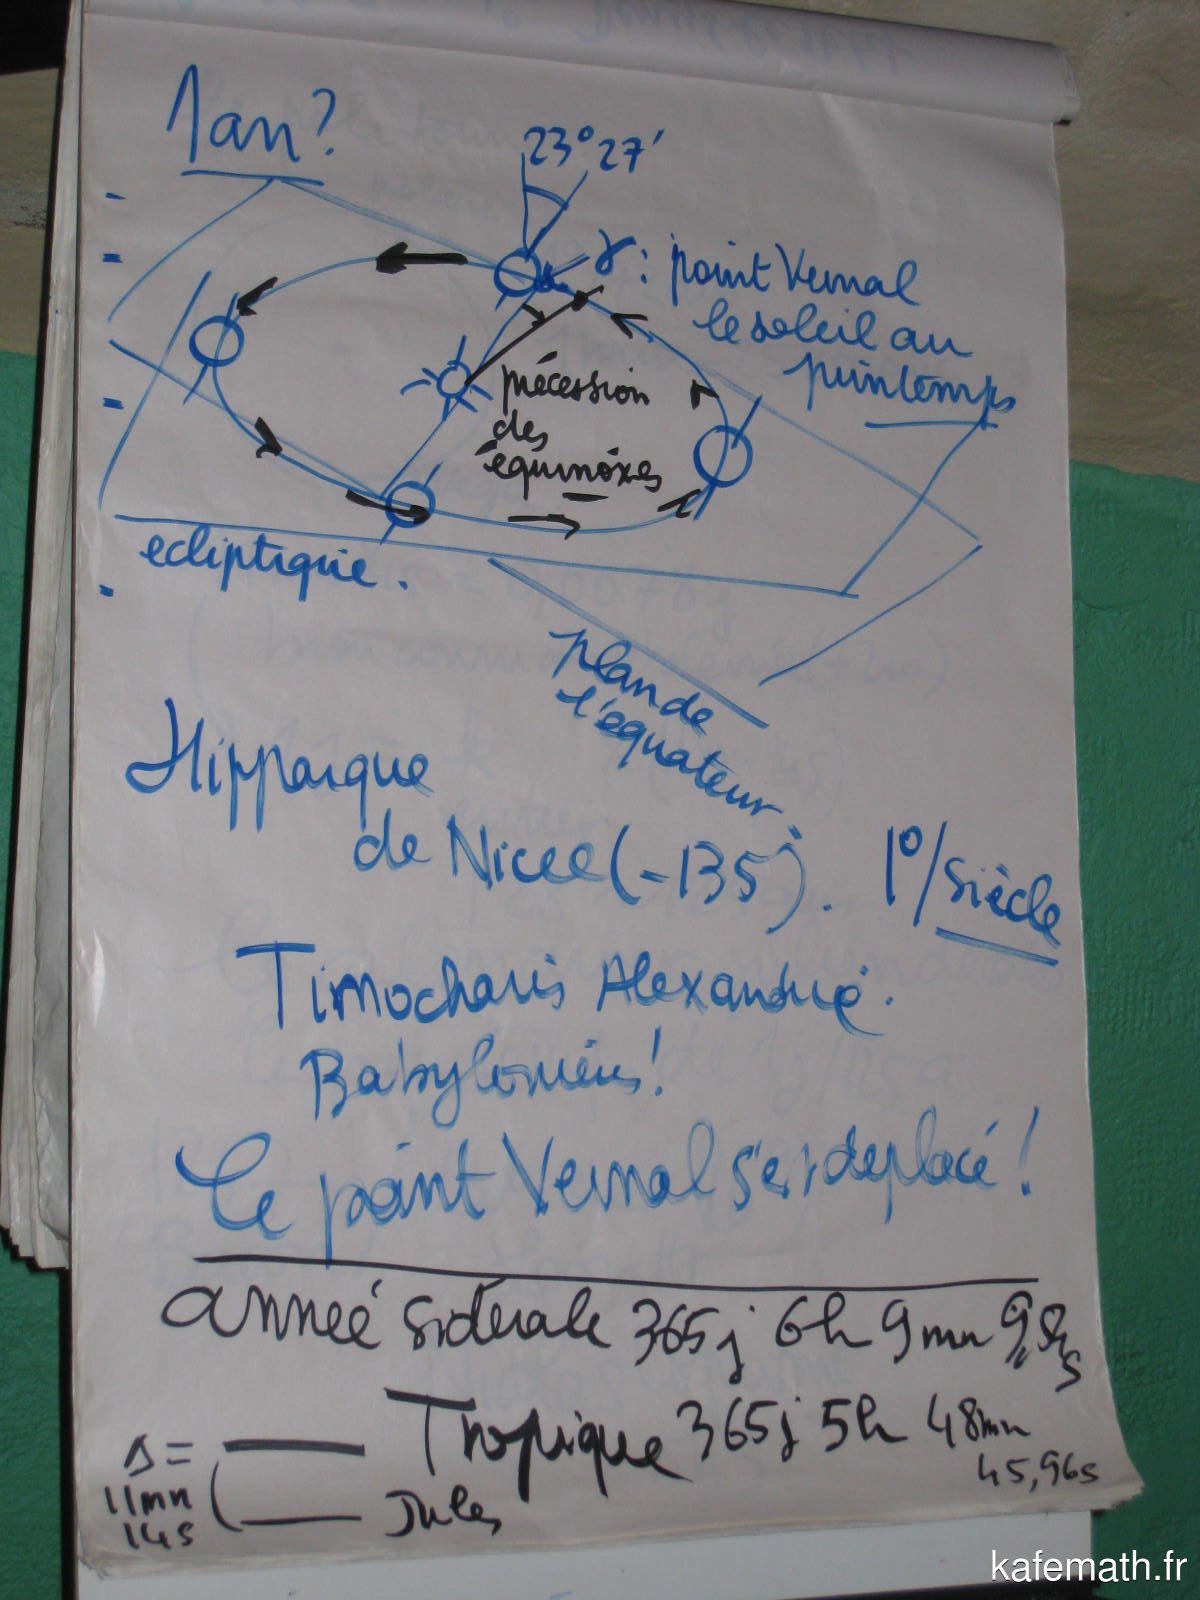 1 an?
23° 27'
γ : point Vernal
le soleil au
printemps
précession
des
équinoxes
ecliptique.
plan de
l'equateur.
Hipparque
de Nicee (-135). 1°/siècle
Timocharis Alexandrie.
Babyloniens!
Le point Vernal s'est deplacé!
année siderale 365j 6h 9mn
Tropique 365j 5h 48mn
45,96s
Δ =
11mn
14s
Jules
kafemath.fr